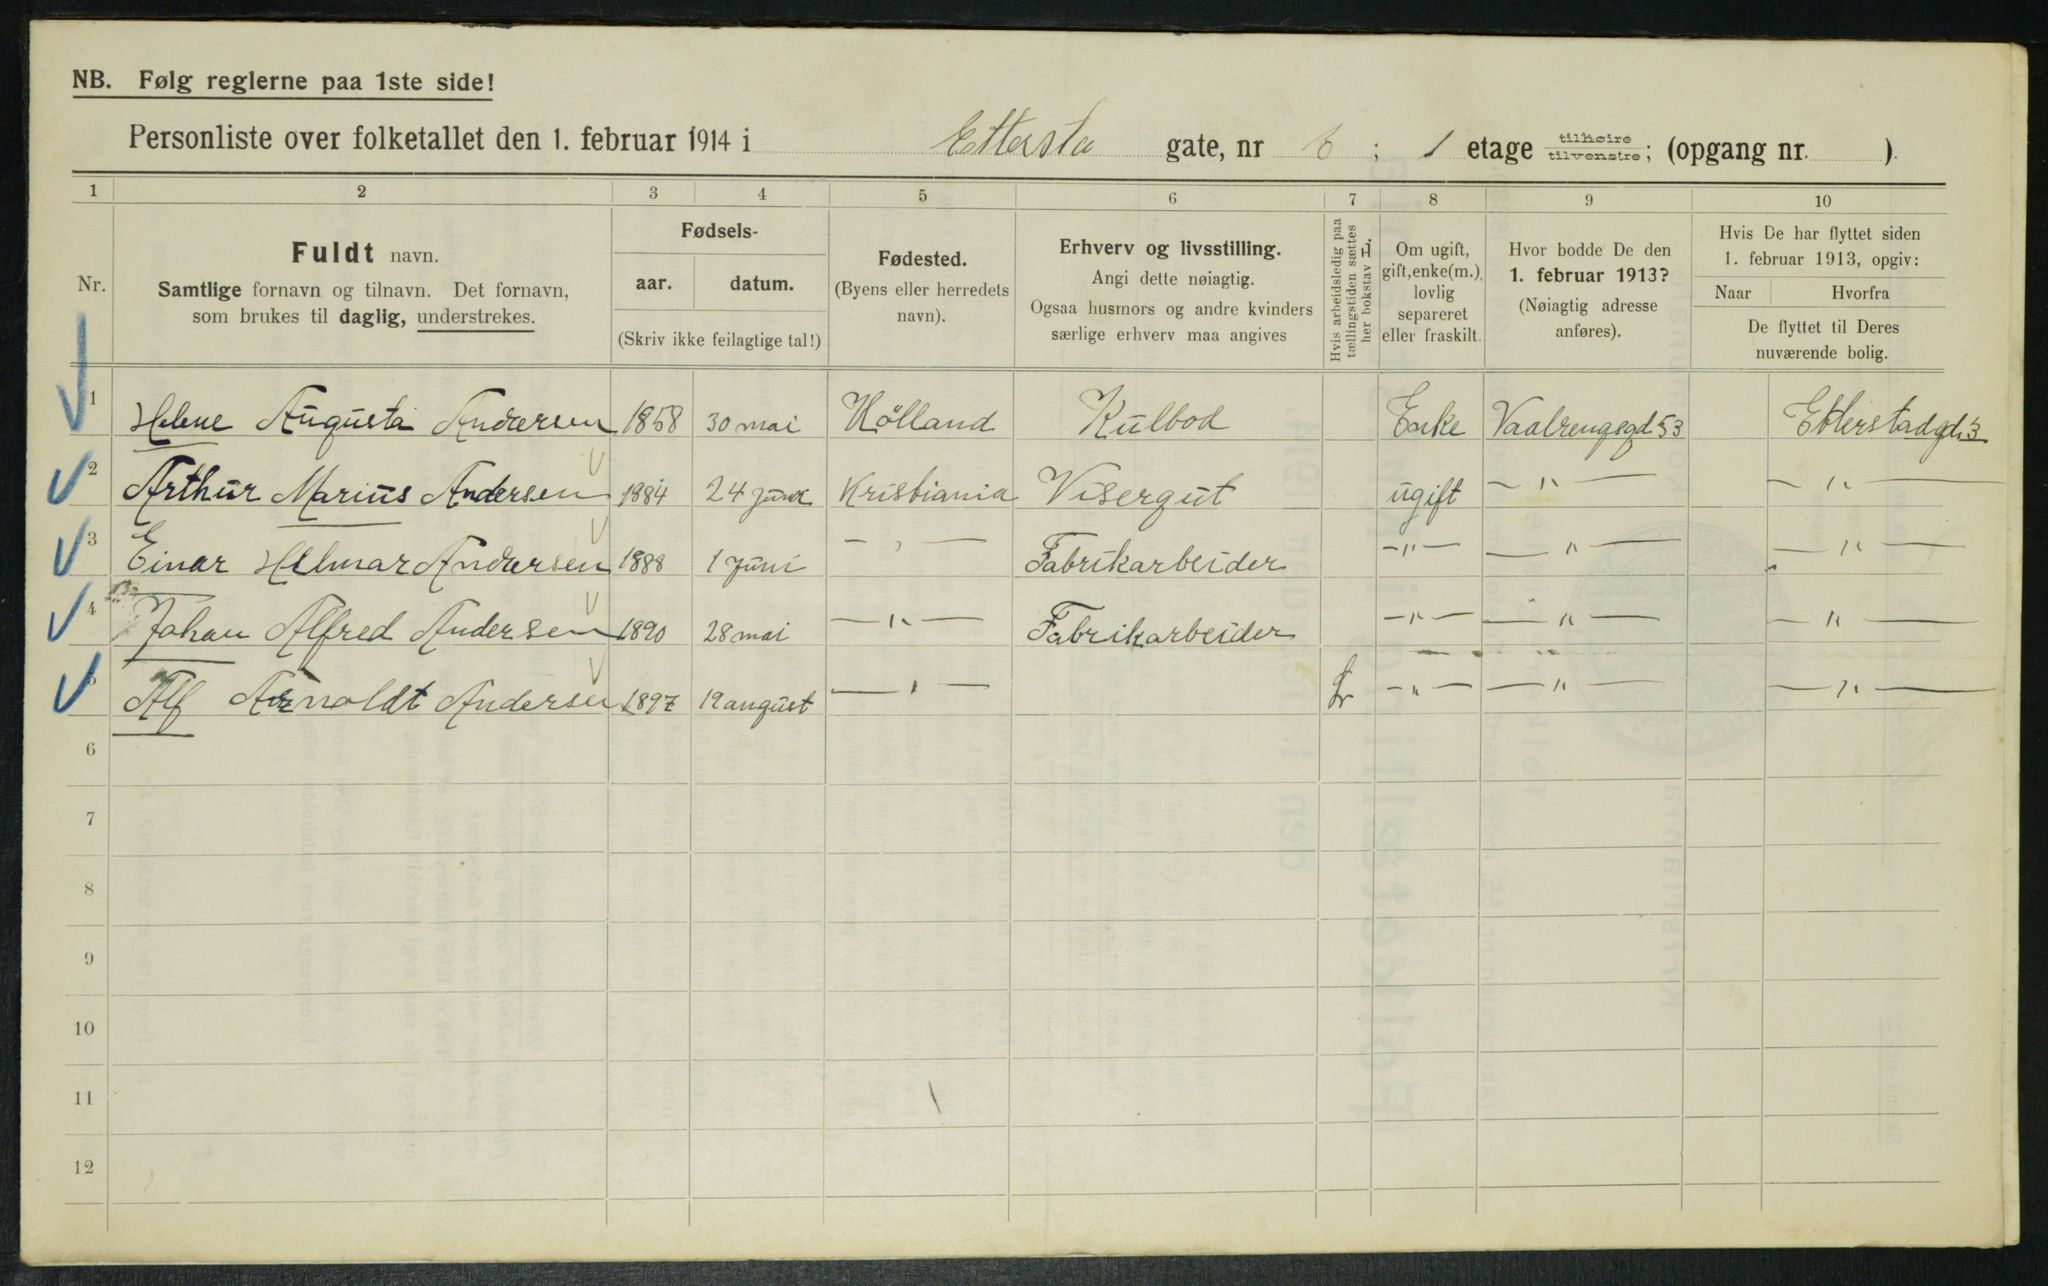 NB. Følg reglerne paa 1ste side!
Personliste over folketallet den 1. februar 1914 i Ettersta gate, nr 6 ; 1 etage tilhøire tilvenstre; (opgang nr. ).
1 2 3 4 5 6 7 8 9 10
Nr.
Fuldt navn.
Samtlige fornavn og tilnavn. Det fornavn,
som brukes til daglig, understrekes.
Fødsels-
aar. datum.
(Skriv ikke feilagtige tal!)
Fødested.
(Byens eller herredets
navn).
Erhverv og livsstilling.
Angi dette nøiagtig.
Ogsaa husmors og andre kvinders
særlige erhverv maa angives
Hvis arbeidsledig paa
tællingstiden sættes
her bokstav L
Om ugift,
gift, enke(m.),
lovlig
separeret
eller fraskilt.
Hvor bodde De den
1. februar 1913?
(Nøiagtig adresse
anføres).
Hvis De har flyttet siden
1. februar 1913, opgiv:
Naar Hvorfra
De flyttet til Deres
nuværende bolig.
1 Helene Augusta Andersen 1858 30 mai Hölland Kulbod Enke Vaalrengsgd. 53 Etterstadgd. 3
2 Arthur Marius Andersen 1884 24 Juni Kristiania Visergut ugift — " — — " —
3 Einar Hilmar Andersen 1888 1 Juni — " — Fabrikarbeider — " — — " — — " —
4 Johan Alfred Andersen 1890 28 mai — " — Fabrikarbeider — " — — " — — " —
5 Alf Arnoldt Andersen 1897 19 august — " — L — " — — " — — " —
6
7
8
9
10
11
12